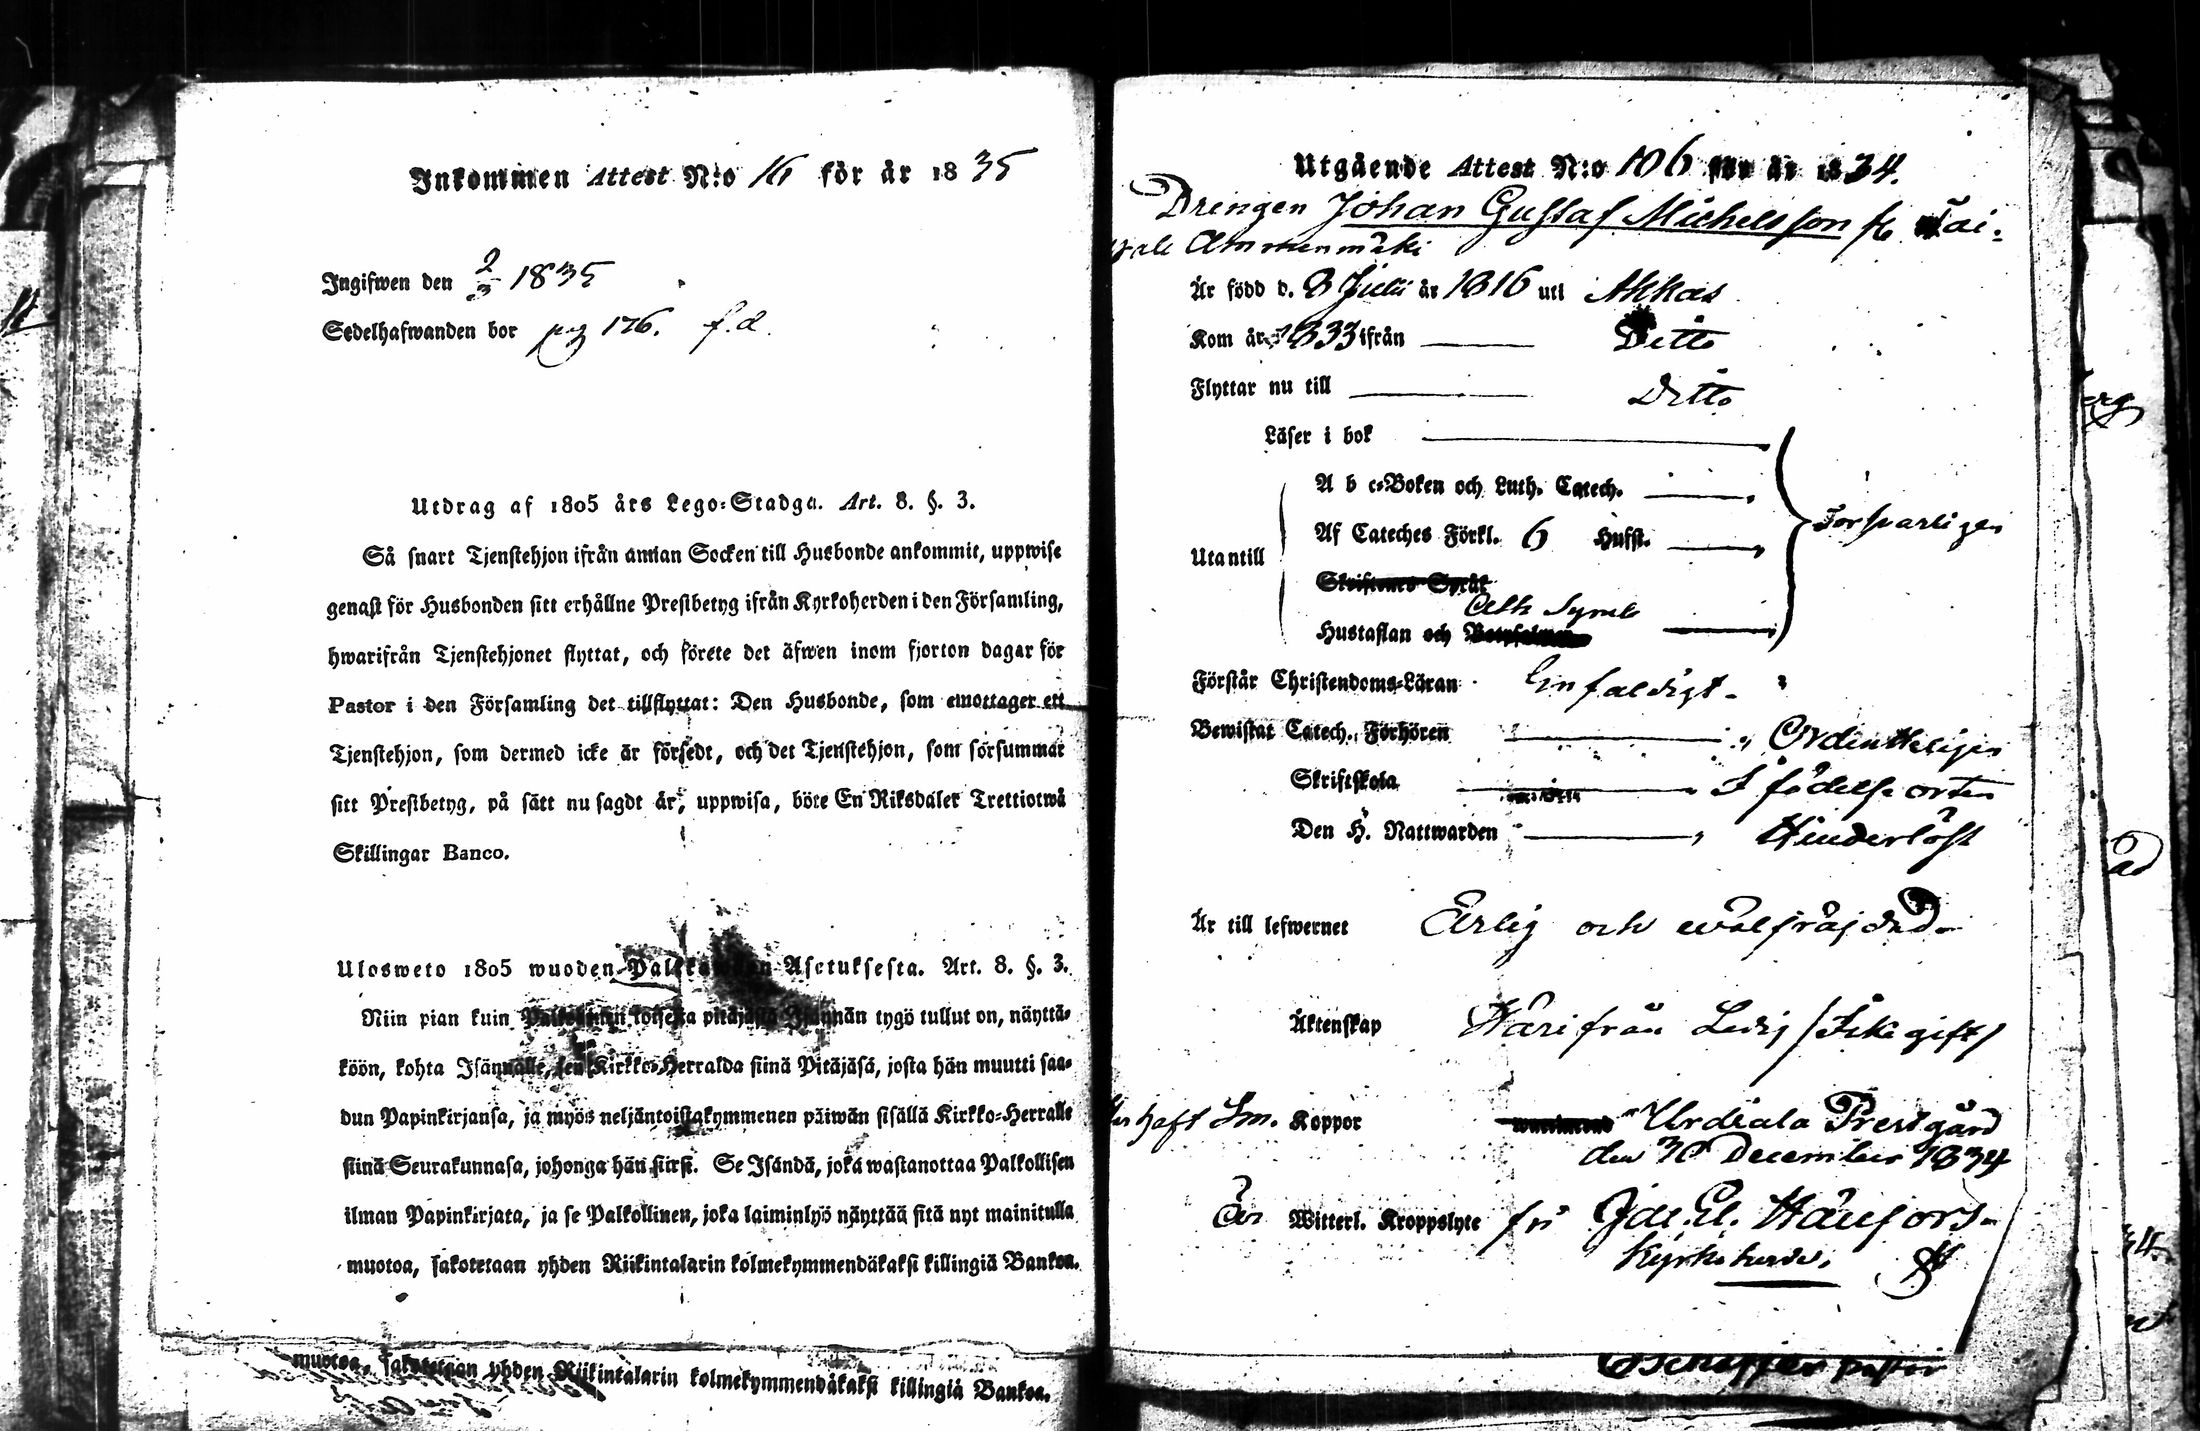 Inkommen Attest N:o 16 för år 1835
Ingifwen den 2/3 1835
Sedelhafwanden bor pag 176. f.d.
Utdrag af 1805 års Lego-Stadga. Art. 8. §. 3.
Så snart Tjenstehjon ifrån annan Socken till Husbonde ankommit, uppwise
genast för Husbonden sitt erhållne Prestbetyg ifrån Kyrkoherden i den Församling,
hwarifrån Tjenstehjonet flyttat, och förete det äfwen inom fjorton dagar för
Pastor i den Församling det tillflyttat: Den Husbonde, som emottager ett
Tjenstehjon, som dermed icke är försedt, och det Tjenstehjon, som försummar
sitt Prestbetyg, på sätt nu sagdt är, uppwisa, böte En Riksdaler Trettiotwå
Skillingar Banco.
Ulosweto 1805 wuoden Palkkawäen Asetuksesta. Art. 8. §. 3.
Niin pian kuin Palkollinen toisesta pitäjästä Isännän tygö tullut on, näyttä-
köön, kohta Isännälle, sen Kirkko-Herralda siinä Pitäjäsä, josta hän muutti saa-
dun Papinkirjansa, ja myös neljäntoistakymmenen päiwän sisällä Kirkko-Herralle
siinä Seurakunnasa, johonga hän siirsi. Se Isändä, joka wastanottaa Palkollisen
ilman Papinkirjata, ja se Palkollinen, joka laiminlyö näyttää sitä nyt mainitulla
muotoa, sakotetaan yhden Riikintalarin kolmekymmendäkaksi killingiä Bankoa.
muotoa, sakotetaan yhden Riikintalarin kolmekymmendäkaksi killingiä Bankoa.
Utgående Attest N:o 106 för år 1834.
Drengen Johan Gustaf Michelsson fr Tai-
pale Ammenmäki
Är född d. 8 Julii år 1816 uti Akkas
Kom år 1833 ifrån Ditto
Flyttar nu till Ditto
Läser i bok
A b c-Boken och Luth. Catech.
Försvarligen
Utantill
Af Cateches Förkl. 6 Hufst.
Skriftenes Språk
Ath Symb
Hustaflan och
Förstår Christendoms-Läran Enfaldigt.
Bewistat Catech. Förhören Ordentligen
Skriftskola I födelse orten
Den H. Nattwarden Hinderlöst
Är till lefwernet Ärlig och wälfräjdad.
Äktenskap Härifrån Ledig /Icke gift/
haft Sm. Koppor Urdiala Prestgård
den 30 December 1834
Är Witterl. Kroppslyte fri
Kyrkoherde.